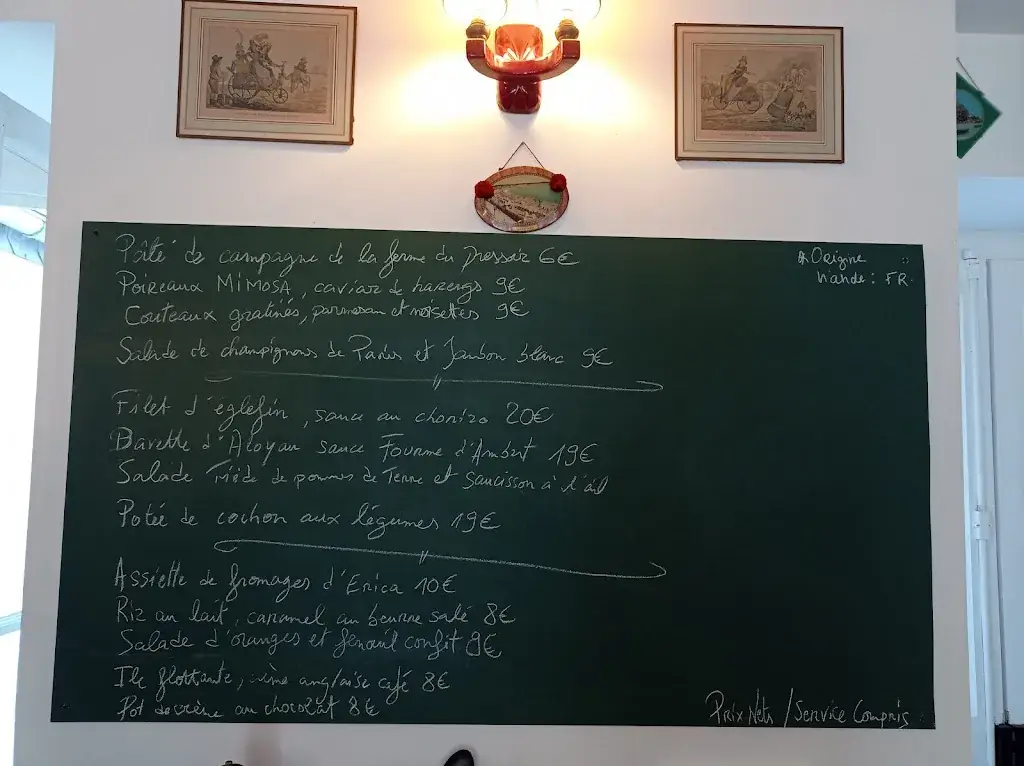 Pâté de campagne de la ferme du Pressoir 6€
Poireaux MIMOSA, caviar de harengs 9€
Couteaux gratinés, parmesan et noisettes 9€
Salade de champignons de Paris et Jambon blanc 9€
Filet d'églefin, sauce au chorizo 20€
Bavette d'Aloyau sauce Fourme d'Ambert 19€
Salade Tiède de pommes de Terre et Saucisson à l'ail
Potée de cochon aux légumes 19€
Assiette de fromages d'Erica 10€
Riz au lait, caramel au beurre salé 8€
Salade d'oranges et fenouil confit 8€
Ile flottante, crème anglaise café 8€
Pot de crème au chocolat 8€
Origine
Viande: FR
Prix Nets / Service Compris